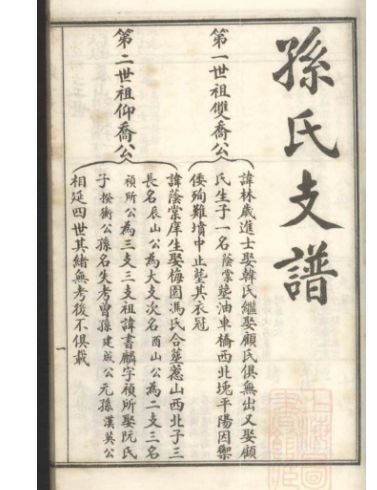 孫氏支譜
第一世祖雙喬公
諱林歲進士娶韓氏繼娶顧氏俱無出又娶顧
氏生子一名蔭棠塟油車橋西北堍平陽因禦
倭殉難墳中止塟其衣冠
第二世祖仰喬公
諱蔭棠庠生娶梅園馮氏合塟蔥山西北子三
長名辰山公為大支次名酉山公為二支三名
禎所公為三支三支祖諱書麟字禎所娶阮氏
子揆衡公孫名失考曾孫建威公元孫漢英公
相延四世其緒無考後不俱載
一